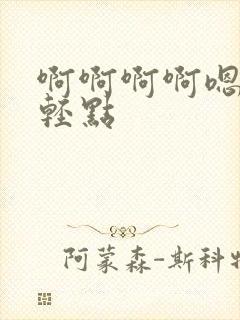 啊啊啊啊嗯
輕點
阿蒙森-斯科特